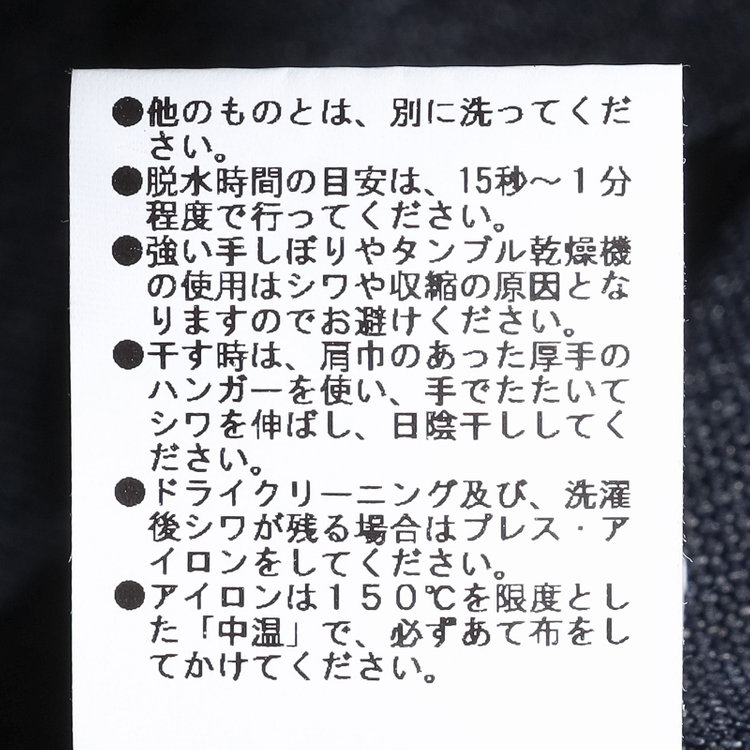 ●他のものとは、別に洗ってくだ
さい。
●脱水時間の目安は、15秒～１分
程度で行ってください。
●強い手しぼりやタンブル乾燥機
の使用はシワや収縮の原因とな
りますのでお避けください。
●干す時は、肩巾のあった厚手の
ハンガーを使い、手でたたいて
シワを伸ばし、日陰干ししてく
ださい。
●ドライクリーニング及び、洗濯
後シワが残る場合はプレス・ア
イロンをしてください。
●アイロンは１５０℃を限度とし
た「中温」で、必ずあて布をし
てかけてください。